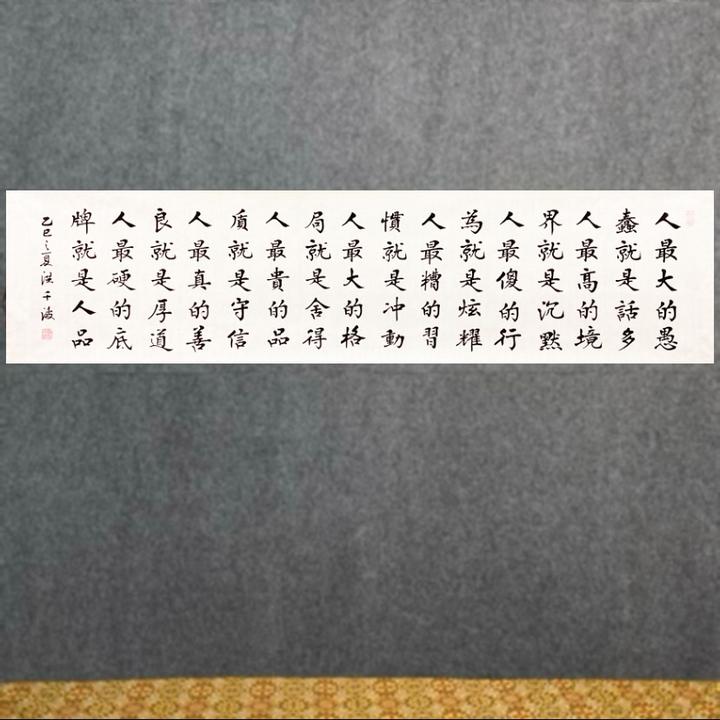 人最大的愚
蠢就是話多
人最高的境
界就是沉默
人最傻的行
為就是炫耀
人最糟的習
慣就是冲動
人最大的格
局就是舍得
人最貴的品
质就是守信
人最真的善
良就是厚道
人最硬的底
牌就是人品
乙巳之夏洪千波